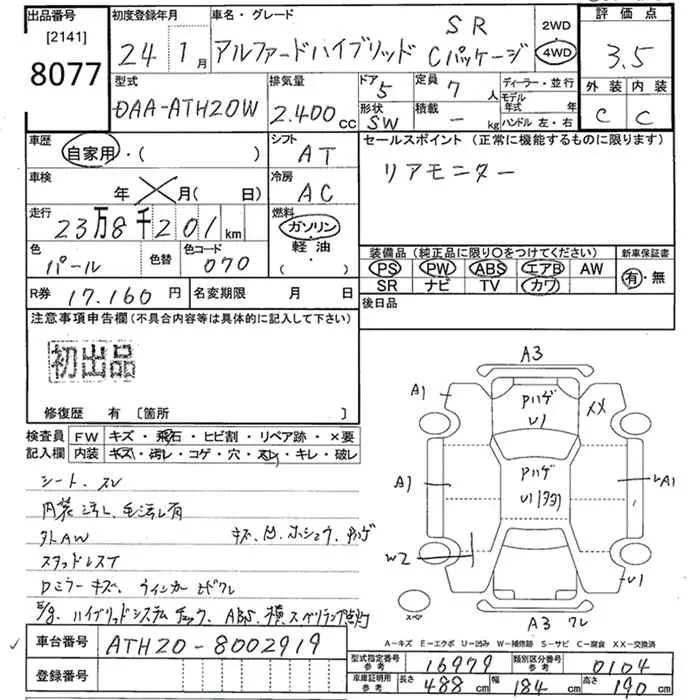 出品番号
[2141]
8077
初度登録年月
24 1月
車名・グレード
アルファードハイブリッド SR Cパッケージ
2WD
4WD
評価点
3.5
外装 内装
C C
型式
DAA-ATH20W
排気量
2.400cc
ドア
5
形状
SW
定員
7人
積載
- kg
ディーラー・並行
モデル年式 年
ハンドル 左・右
車歴
自家用・( )
シフト
AT
セールスポイント (正常に機能するものに限ります)
リアモニター
車検
年 月( 日)
冷房
AC
走行
23万8千201km
燃料
ガソリン
軽油
・( )
色
パール
色替
色コード
070
装備品 (純正品に限り○をつけてください)
新車保証書
PS PW ABS エアB AW
SR ナビ TV カワ
有・無
R券 17.160円
名変期限 月 日
後日品
注意事項申告欄(不具合内容等は具体的に記入して下さい)
初出品
修復歴 有 [箇所 ]
検査員記入欄
FW キズ・飛石・ヒビ割・リペア跡・×要
内装 キズ・汚レ・コゲ・穴・スレ・キレ・破レ
シート、スレ
内装汚レ、毛汚レ有
外AW キズ、凹、ホシュウ、ハゲ
スタッドレスT
Dミラーキズ、ウインカー
E/g、ハイブリッドシステムチェック、ABS、横スベリランプ点灯
A3
A1
Pハゲ
U1
XX
A1
Pハゲ
U1
A1
W2
U1
スペア
A3 ワレ
A-キズ E-エクボ U-凹み W-補修跡 S-サビ C-腐食 XX-交換済
車台番号
ATH20-8002919
登録番号
型式指定番号 参考
16979
類別区分番号 参考
0104
車庫証明用 参考
長さ 488cm
幅 184cm
高さ 190cm